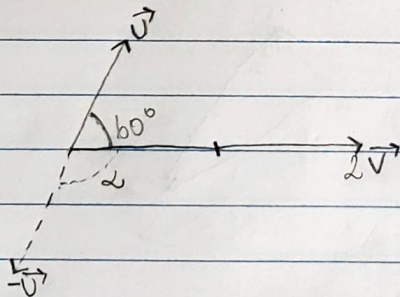 U⃗
60°
2V⃗
α
-U⃗